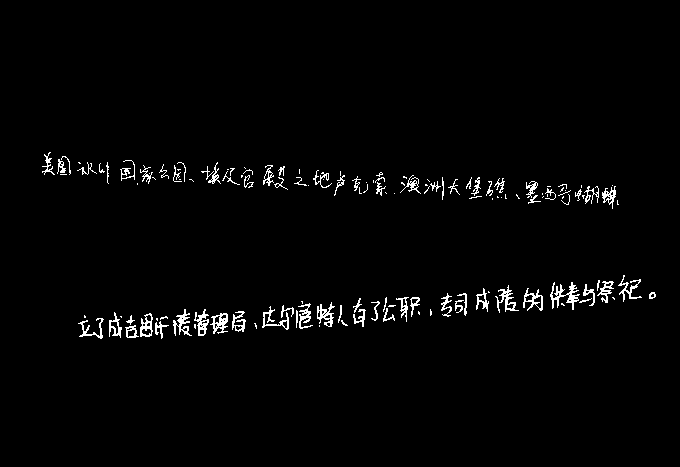 美国冰川国家公园、埃及宫殿之地卢克索、澳洲大堡礁、墨西哥蝴蝶
立了成吉思汗陵管理局、达尔扈特人有了公职,专司成陵的供奉与祭祀。